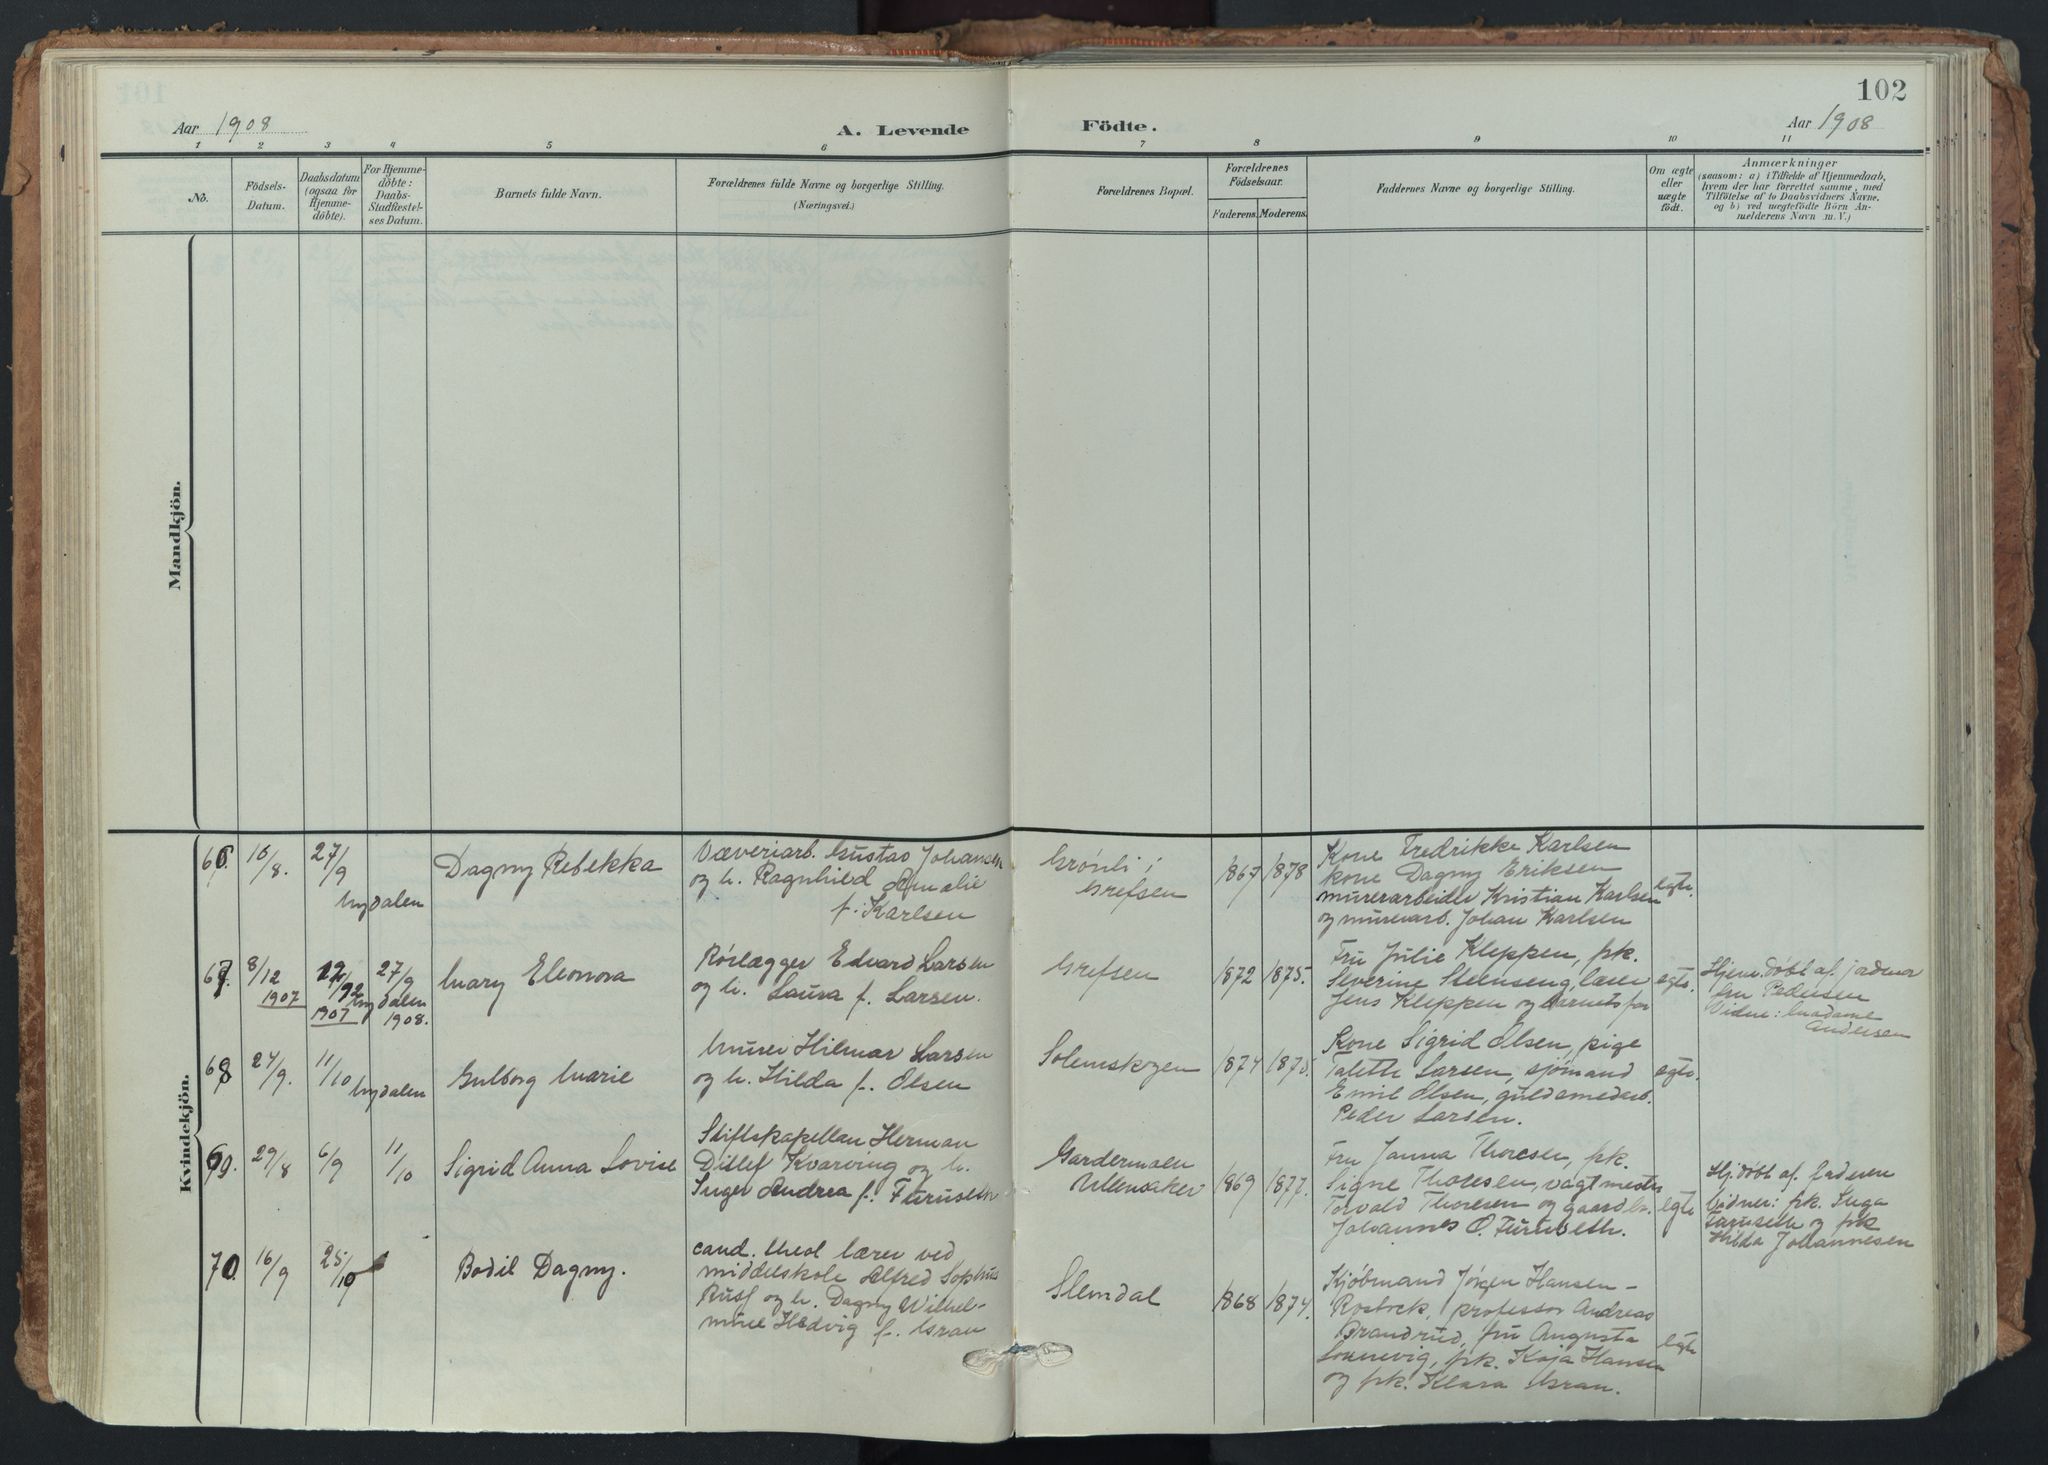 102
Aar 1908
A. Levende Födte.
Aar 1908
1 2 3 4 5 6 7 8 9 10 11
No.
Födsels-
Datum.
Daabsdatum
(ogsaa for
Hjemme-
döbte).
For Hjemme-
döbte:
Daabs-
Stadfæstel-
ses Datum.
Barnets fulde Navn.
Forældrenes fulde Navne og borgerlige Stilling.
(Næringsvei.)
Forældrenes Bopæl.
Forældrenes
Födselsaar.
Faderens. Moderens.
Faddernes Navne og borgerlige Stilling.
Om ægte
eller
uægte
født.
Anmærkninger
(saasom: a) i Tilfælde af Hjemmedaab,
hvem der har forrettet samme, med
Tilföielse af to Daabsvidners Navne,
og b) ved uægtefödte Börn An-
melderens Navn m. V.)
Mandkjön.
Kvindekjön.
66. 16/8. 27/9
Nydalen
Dagny Rebekka
Væveriarb. Gustav Johansen
og h. Ragnhild Amalie
f. Karlsen
Grønli i
Grefsen
1867 1878
Kone Fredrikke Karlsen
kone Dagny Eriksen
murerarbeider Kristian Karlsen
og murerarb. Johan Karlsen
egte.
67. 8/12
1907
1907
27/9
Nydalen
1908.
Mary Eleonora
Rørlægger Edvard Larsen
og h. Laura f. Larsen.
Grefsen
1872 1875.
Fru Julie Kleppen, frk.
Severine Steenseng, læser
Jens Kleppen og barnets far
egte.
Hjem. døbt af jordmor
fru Pedersen
Vidne: Madame
Andersen
68 24/9. 11/10
Nydalen
Gulborg Marie
Murer Hilmar Larsen
og h. Hilda f. Olsen
Solemskogen
1874 1875.
Kone Sigrid Olsen, pige
Talette Larsen, sjømand
Emil Olsen, guldsmedarb.
Peder Larsen.
egte.
69. 29/8 6/9 11/10
Sigrid Anna Lovise
Stiftskapellan Herman
Ditlef Kvarving og h.
Inger Andrea f. Furuseth
Gardermoen
Ullensaker
1869 1877.
Fru Janna Thoresen, frk.
Signe Thoresen, vagtmester
Torvald Thoresen og gaardbr.
Johannes O. Furuseth.
egte
Hj. døbt af faderen
Vidner: frk. Inga
Furuseth og frk
Hilda Johannesen
70. 16/9 25/10
Bodil Dagny.
cand. theol lærer ved
middelskole Alfred Sophus
Russ og h. Dagny Wilhel-
mine Hedvig f. Gran
Slemdal
1868 1874.
Kjøbmand Jørgen Hansen-
Rostock, professor Andreas
Brandrud, fru Augusta
Sonnevig, frk. Kaja Hansen
og frk. Klara Gran.
egte